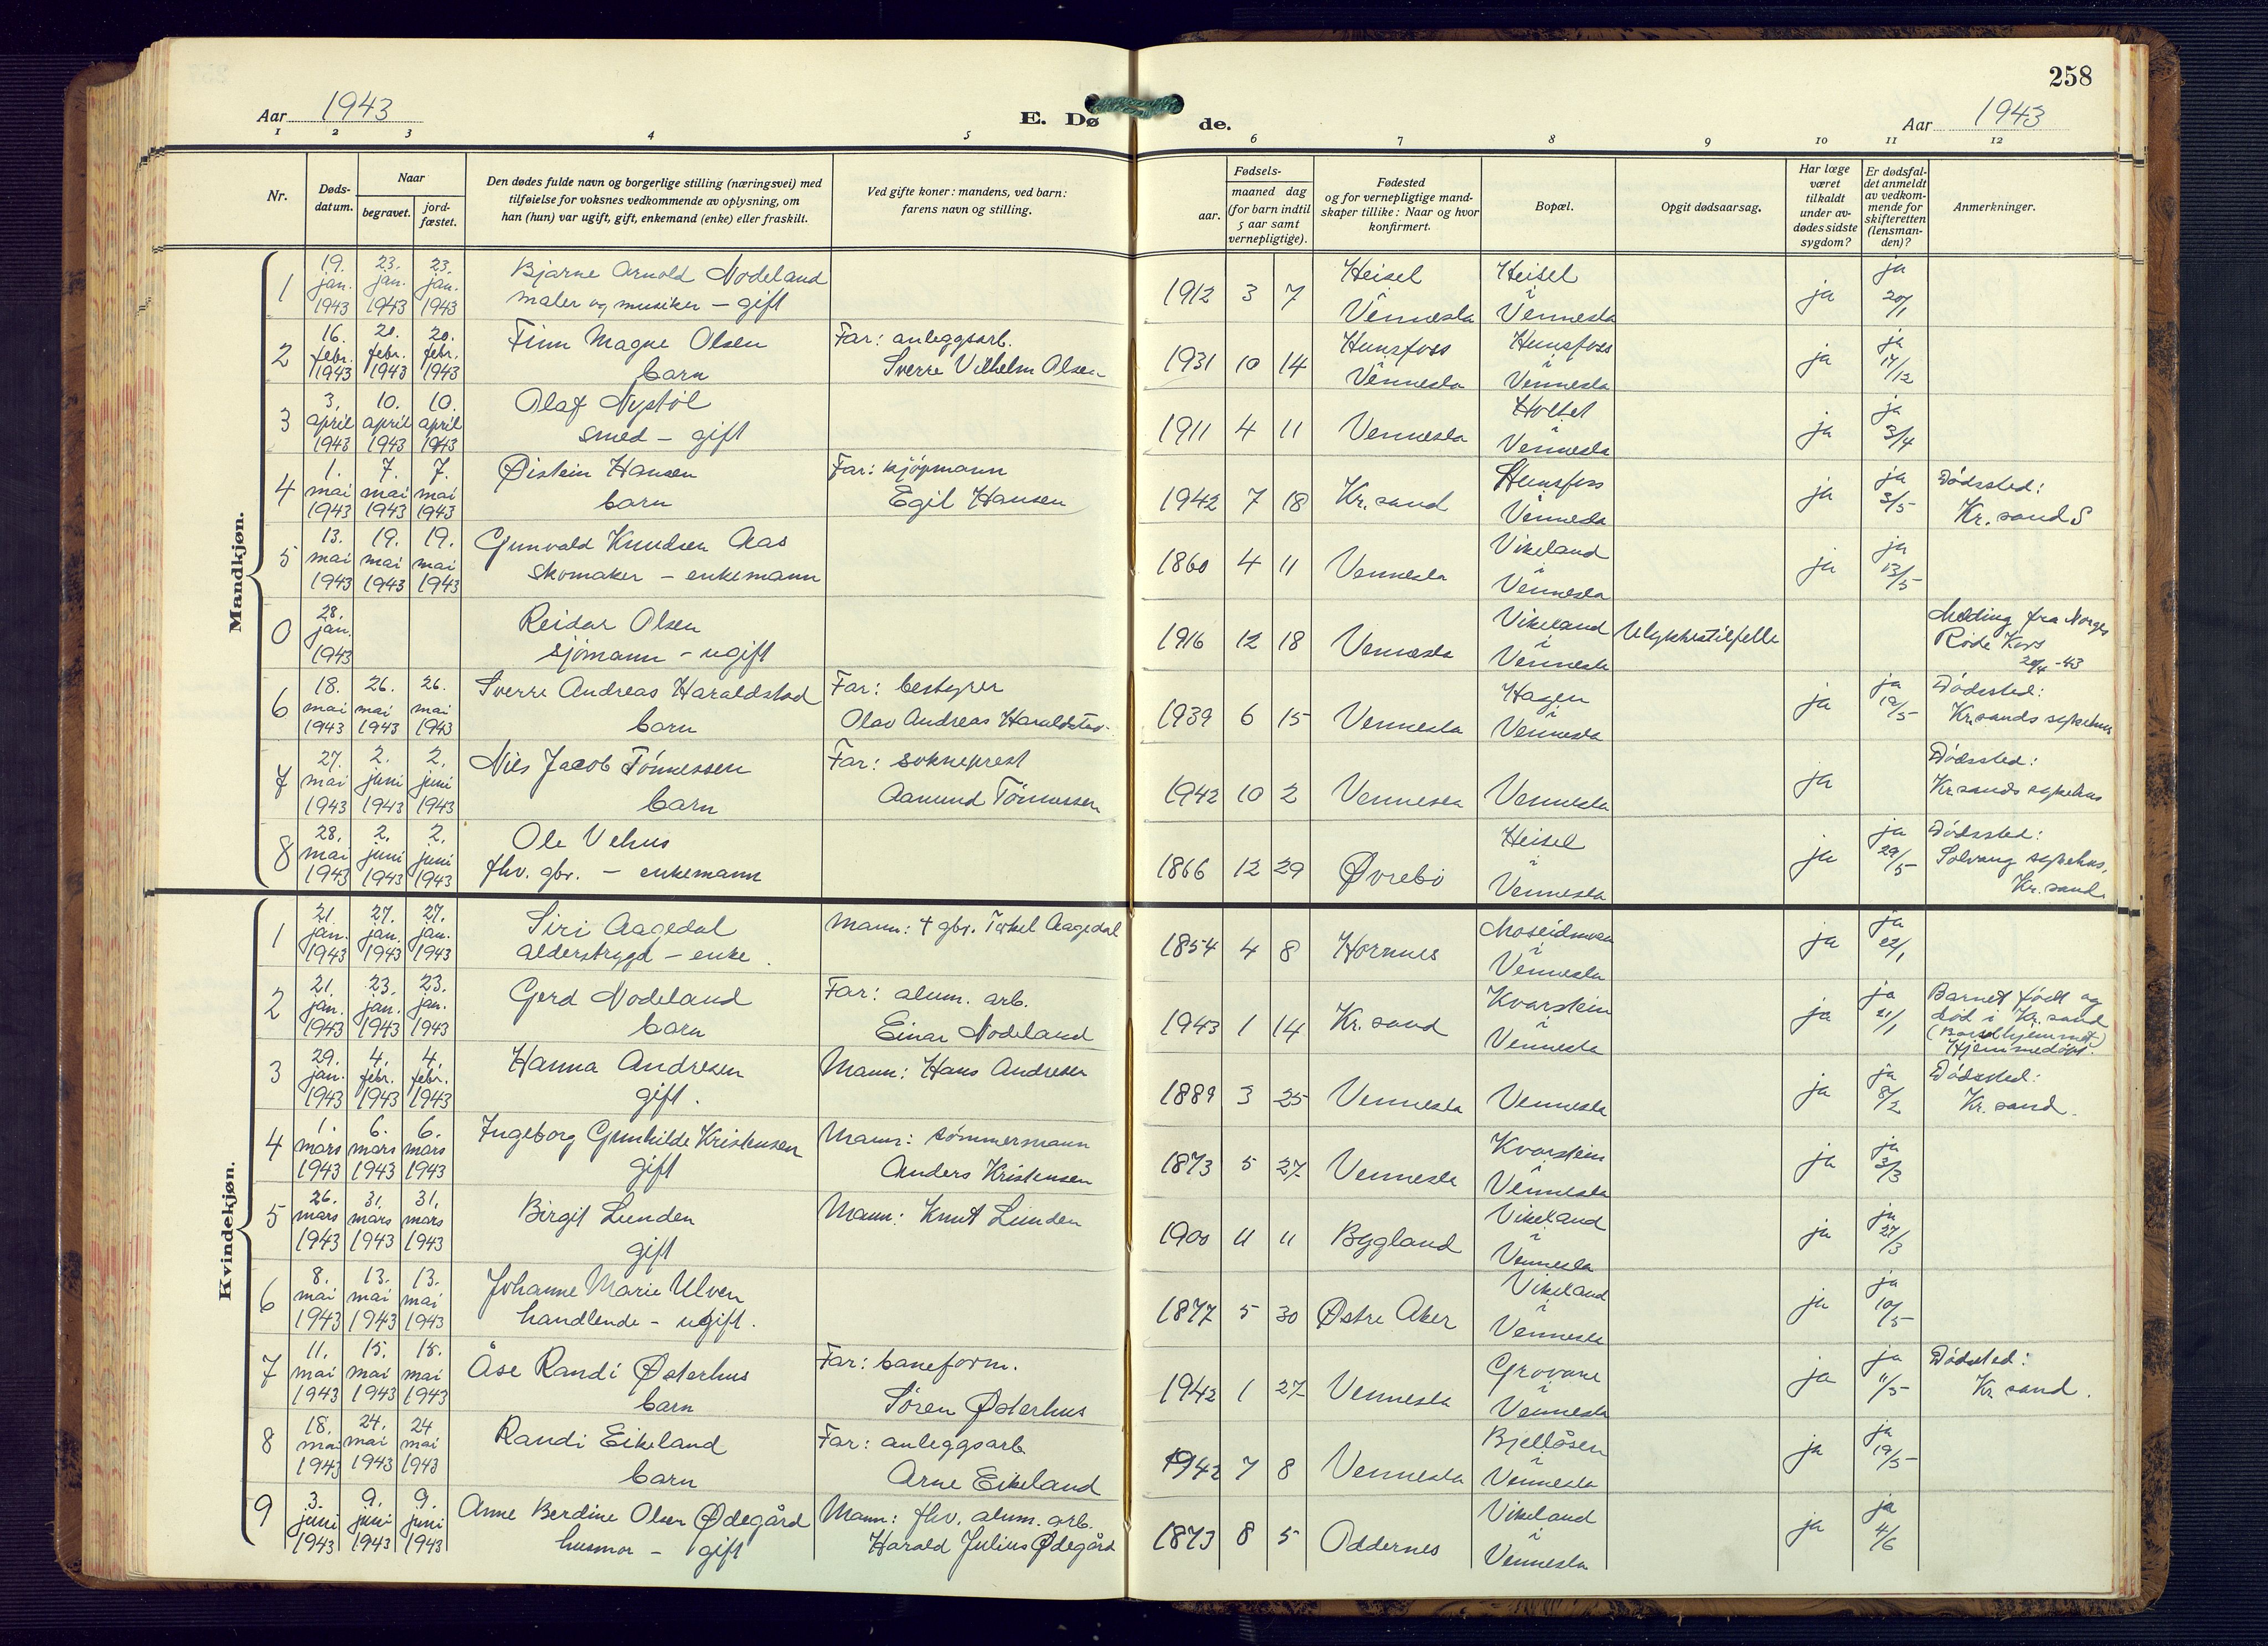 258
Aar 1943
E. Dø
de.
Aar 1943
1 2 3 4 5 6 7 8 9 10 11 12
Nr.
Døds-
datum.
Naar
begravet.
jord-
fæstet.
Den dødes fulde navn og borgerlige stilling (næringsvei) med
tilføielse for voksnes vedkommende av oplysning, om
han (hun) var ugift, gift, enkemand (enke) eller fraskilt.
Ved gifte koner: mandens, ved barn:
farens navn og stilling.
Fødsels-
aar.
maaned dag
(for barn indtil
5 aar samt
vernepligtige).
Fødested
og for vernepligtige mand-
skaper tillike: Naar og hvor
konfirmert.
Bopæl.
Opgit dødsaarsag.
Har læge
været
tilkaldt
under av-
dødes sidste
sygdom?
Er dødsfal-
det anmeldt
av vedkom-
mende for
skifteretten
(lensman-
den)?
Anmerkninger.
Mandkjøn.
1
19. jan. 1943
23. jan. 1943
23. jan. 1943
Bjarne Arnold Nodeland
maler og musiker - gift
1912 3 7
Heisel
i
Vennesla
Heisel
i
Vennesla
ja
ja
20/1
2
16. febr. 1943
20. febr. 1943
20. febr. 1943
Finn Magne Olsen
barn
Far: anleggsarb.
Sverre Vilhelm Olsen
1931 10 14
Hunsfoss
i
Vennesla
Hunsfoss
i
Vennesla
ja
ja
17/12
3
3. april 1943
10. april 1943
10. april 1943
Olaf Nystøl
smed - gift
1911 4 11
Vennesla
Holtet
i
Vennesla
ja
ja
3/4
4
1. mai 1943
7. mai 1943
7. mai 1943
Øistein Hansen
barn
Far: kjøpmann
Egil Hansen
1942 7 18
Kr.sand
Hunsfoss
i
Vennesla
ja
ja
3/5
Dødssted:
Kr.sand S
5
13. mai 1943
19. mai 1943
19. mai 1943
Gunvald Knudsen Aas
skomaker - enkemann
1860 4 11
Vennesla
Vikeland
i
Vennesla
ja
ja
13/5
0
28. jan. 1943
Reidar Olsen
sjømann - ugift
1916 12 18
Vennesla
Vikeland
i
Vennesla
Ulykkestilfelle
Melding fra Norges
Røde Kors
20/4 -43
6
18. mai 1943
26. mai 1943
26. mai 1943
Sverre Andreas Haraldstad
barn
Far: bestyrer
Olav Andreas Haraldstad
1939 6 15
Vennesla
Hagen
i
Vennesla
ja
ja
19/5
Dødssted:
Kr.sands sykehus
7
27. mai 1943
2. juni 1943
2. juni 1943
Nils Jacob Tønnessen
barn
Far: sokneprest
Aamund Tønnessen
1942 10 2
Vennesla
Vennesla
ja
Dødssted:
Kr.sands sykehus
8
28. mai 1943
2. juni 1943
2. juni 1943
Ole Vehus
fhv. gbr. - enkemann
1866 12 29
Øvrebø
Heisel
i
Vennesla
ja
ja
29/5
Dødssted:
Solvang sykehus,
Kr.sand
Kvindekjøn.
1
21. jan. 1943
27. jan. 1943
27. jan. 1943
Siri Aagedal
alderstrygd - enke.
Mann: + gbr. Torkel Aagedal
1854 4 8
Hornnes
Moseidmoen
i
Vennesla
ja
ja
22/1
2
21. jan. 1943
23. jan. 1943
23. jan. 1943
Gerd Nodeland
barn
Far: alum. arb.
Einar Nodeland
1943 1 14
Kr.sand
Kvarstein
i
Vennesla
ja
ja
21/1
Barnet født og
død i Kr.sand
(Barselhjemmet)
Hjemmedøpt.
3
29. jan. 1943
4. febr. 1943
4. febr. 1943
Hanna Andresen
gift.
Mann: Hans Andresen
1889 3 25
Vennesla
Vennesla
ja
ja
8/2
Dødssted:
Kr.sand.
4
1. mars 1943
6. mars 1943
6. mars 1943
Ingeborg Gunhilde Kristensen
gift
Mann: tømmermann
Anders Kristensen
1873 5 27
Vennesla
Kvarstein
i
Vennesla
ja
ja
3/3
5
26. mars 1943
31. mars 1943
31. mars 1943
Birgit Lunden
gift
Mann: Knut Lunden
1900 11 11
Bygland
Vikeland
i
Vennesla
ja
ja
27/3
6
8. mai 1943
13. mai 1943
13. mai 1943
Johanne Marie Ulven
handlende - ugift.
1877 5 30
Østre Aker
Vikeland
i
Vennesla
ja
ja
10/5
7
11. mai 1943
15. mai 1943
15. mai 1943
Åse Randi Østerhus
barn
Far: baneform.
Søren Østerhus
1942 1 27
Vennesla
Grovane
i
Vennesla
ja
ja
11/5
Dødssted:
Kr.sand.
8
18. mai 1943
24. mai 1943
24 mai 1943
Randi Eikeland
barn
Far: anleggsarb
Arne Eikeland
1942 7 8
Vennesla
Bjellåsen
i
Vennesla
ja
ja
19/5
9
3. juni 1943
9. juni 1943
9. juni 1943
Anne Berdine Olsen Ødegård
husmor - gift
Mann: fhv. alum. arb.
Harald Julius Ødegård
1873 8 5
Oddernes
Vikeland
i
Vennesla
ja
ja
4/6